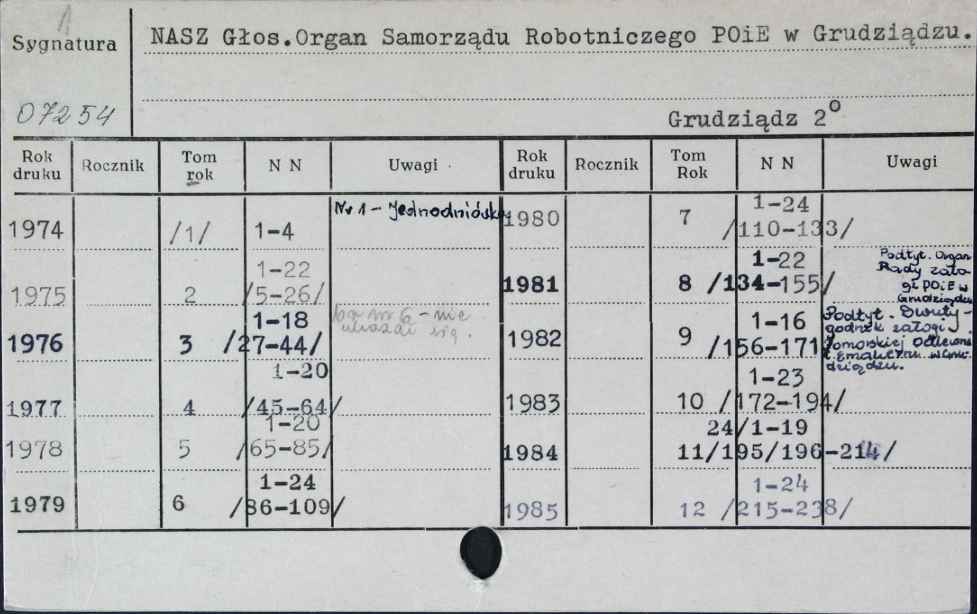 1
Sygnatura
NASZ Głos.Organ Samorządu Robotniczego POiE w Grudziądzu.
07254
Grudziądz 2°
Rok druku Rocznik Tom rok N N Uwagi Rok druku Rocznik Tom Rok N N Uwagi
1974 /1/ 1-4 Nr 1 - Jednodniówka
1975 2 1-22 /5-26/
1976 3 1-18 /27-44/ nr 6 - nie ukazał się.
1977 4 1-20 /45-64/
1978 5 1-20 /65-85/
1979 6 1-24 /86-109/
1980 7 1-24 /110-133/
1981 8 1-22 /134-155/ Podtyt. Organ Rady załogi POiE w Grudziądzu
1982 9 1-16 /156-171/ Podtyt. Dwutygodnik załogi Pomorskiej Odlewni i Emalierni w Grudziądzu.
1983 10 1-23 /172-194/
1984 11 24/1-19 /195/196-214/
1985 12 1-24 /215-238/